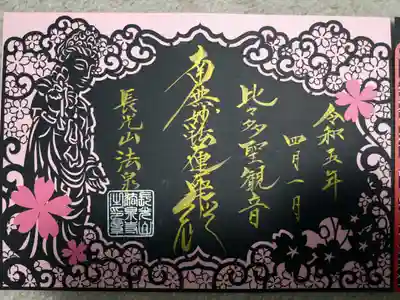 令和五年
四月一日
比々多聖観音
南無妙法蓮華経
長光山法泉